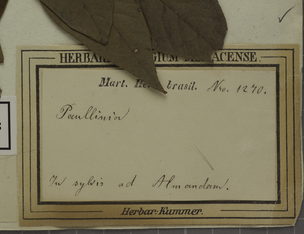 HERBAR GIUM ACENSE
Mart. Her. brasil. Nro. 1270.
Paullinia
In sylvis ad Almandam.
Herbar: Kummer.